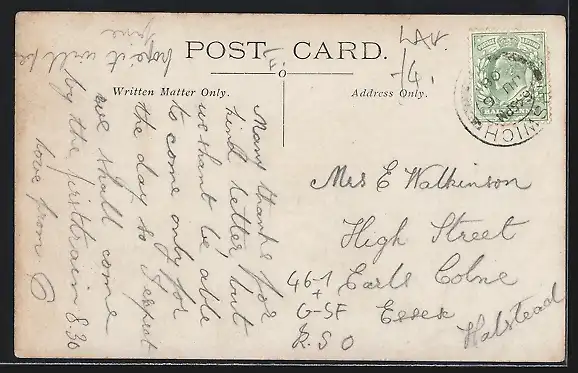 POST CARD.
Written Matter Only.
Address Only.
Many thanks for
kind letter, but
we shant be able
to come only for
the day so I expect
we shall come
by the first train 8.30
love from C
hope it will be
fine
Mrs E Walkinson
High Street
Earls Colne
Essex
Halstead
46-1
+
G-SF
R.S O
LAV.
-/4.
IPSWICH